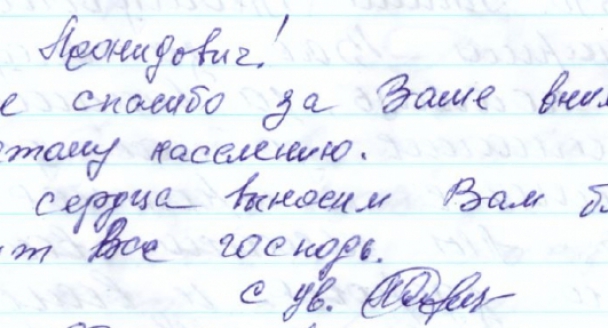 Леонидович!
е спасибо за Ваше вни
тому населению.
сердца выносим Вам б
т Вас господь.
с ув.